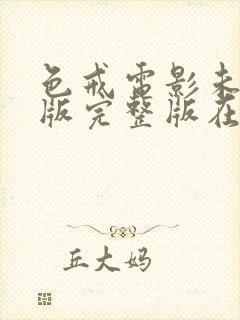 色戒雷影未
版完整版在
丘大妈